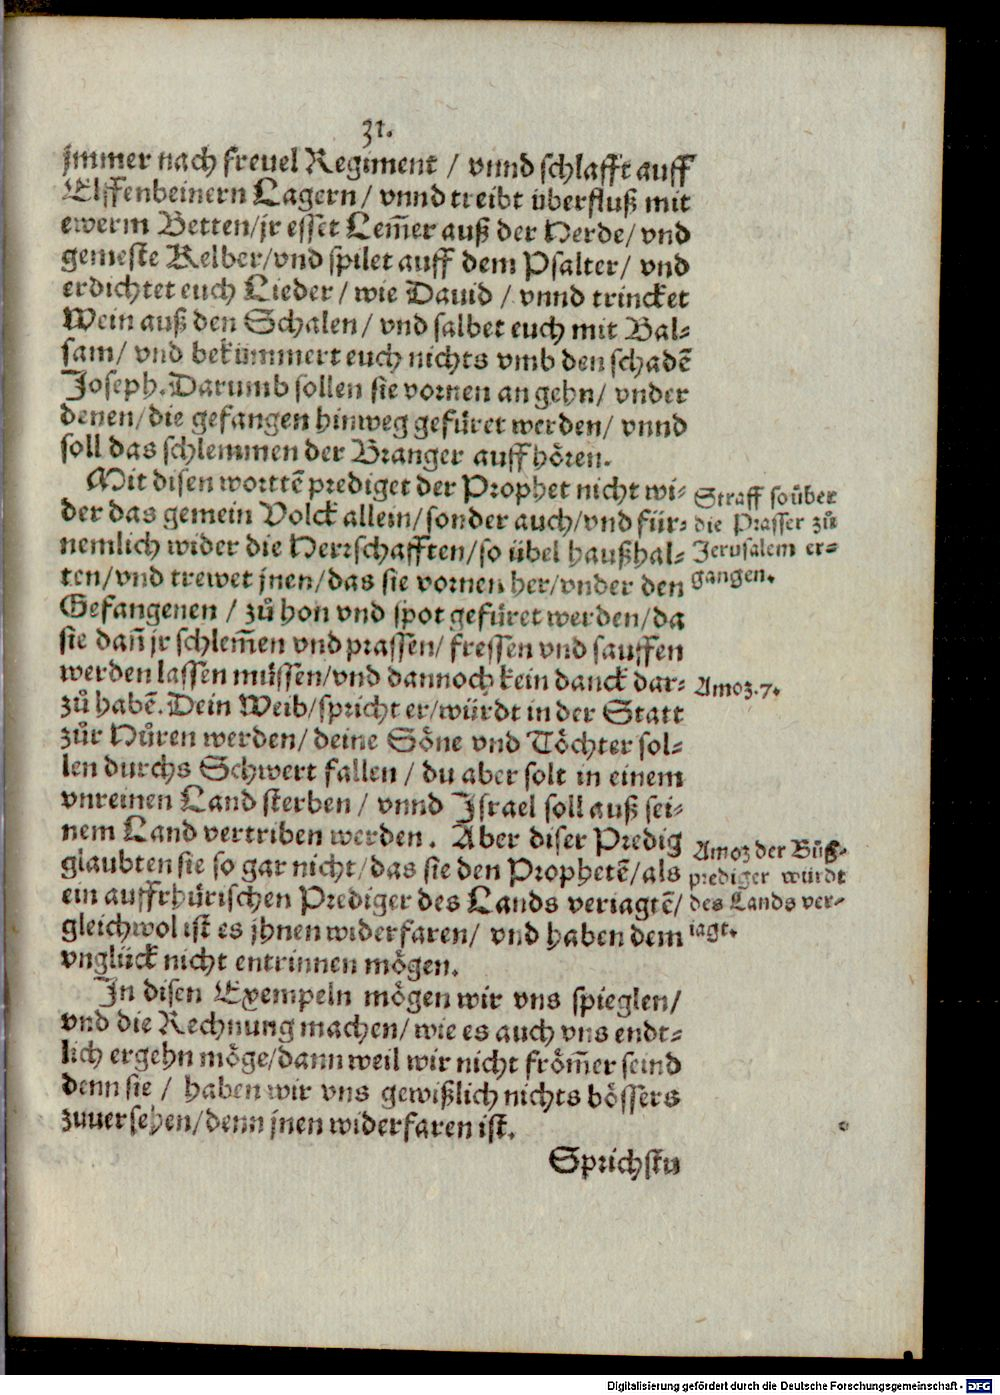 31.
jmmer nach freuel Regiment / vnnd schlafft auff
Elffenbeinern Lagern / vnnd treibt überfluß mit
ewerm Betten/jr esset Lem̃er auß der Herde/ vnd
gemeste Kelber/vnd spilet auff dem Psalter/ vnd
erdichtet euch Lieder / wie Dauid / vnnd trincket
Wein auß den Schalen/ vnd salbet euch mit Bal⸗
sam/ vnd bekümmert euch nichts vmb den schadẽ
Joseph. Darumb sollen sie vornen an gehn/ vnder
denen/die gefangen hinweg gefüret werden/ vnnd
soll das schlemmen der Branger auffhören.
Mit disen worttẽ prediget der Prophet nicht wi⸗
der das gemein Volck allein/sonder auch/vnd für⸗
nemlich wider die Herrschafften/so übel haußhal⸗
ten/vnd trewet jnen/das sie vornen her/vnder den
Gefangenen / zů hon vnd spot gefüret werden/da
sie dañ jr schlem̃en vnd prassen/ fressen vnd sauffen
werden lassen müssen/vnd dannoch kein danck dar⸗
zů habẽ. Dein Weib/spricht er/würdt in der Statt
zůr Hůren werden/ deine Söne vnd Töchter sol⸗
len durchs Schwert fallen / du aber solt in einem
vnreinen Land sterben / vnnd Israel soll auß sei⸗
nem Land vertriben werden. Aber diser Predig
glaubten sie so gar nicht/das sie den Prophetẽ/als
ein auffrhürischen Prediger des Lands veriagtẽ/
gleichwol ist es jhnen widerfaren/ vnd haben dem
vnglück nicht entrinnen mögen.
In disen Exempeln mögen wir vns spieglen/
vnd die Rechnung machen/ wie es auch vns endt⸗
lich ergehn möge/dann weil wir nicht fröm̃er seind
denn sie / haben wir vns gewißlich nichts bössers
zuuersehen/denn jnen widerfaren ist.
Sprichstu
Straff so über
die Prasser zů
Jerusalem er⸗
gangen.
Amoz.7.
Amoz der Bůß⸗
prediger würdt
des Lands ver⸗
iagt.
Digitalisierung gefördert durch die Deutsche Forschungsgemeinschaft - DFG